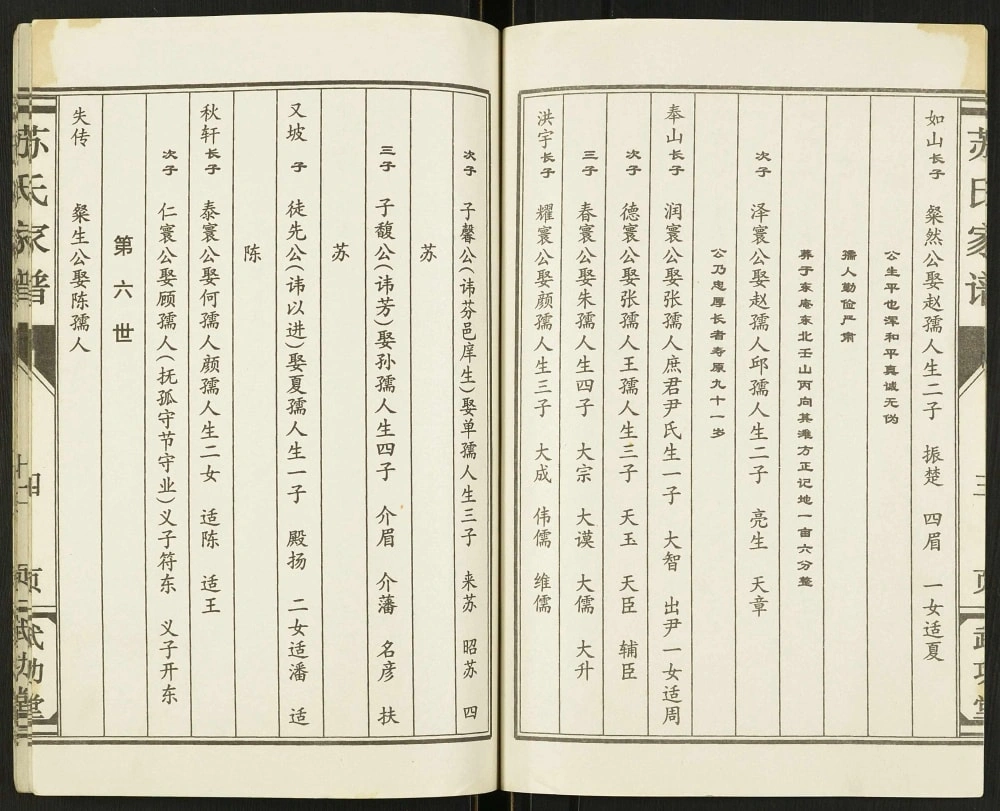 苏氏家谱
武功堂
如山 长子 粲然公娶赵孺人生二子 振楚 四眉 一女适夏
公生平也浑和平真诚无伪
孺人勤俭严肃
葬于东庵东北壬山丙向其滩方正记地一亩六分整
次子 泽寰公娶赵孺人邱孺人生二子 亮生 天章
公乃忠厚长者寿原九十一岁
奉山 长子 润寰公娶张孺人庶君尹氏生一子 大智 出尹一女适周
次子 德寰公娶张孺人王孺人生三子 天玉 天臣 辅臣
三子 春寰公娶朱孺人生四子 大宗 大谟 大儒 大升
洪宇 长子 耀寰公娶颜孺人生三子 大成 伟儒 维儒
次子 子馨公(讳芬邑庠生)娶单孺人生三子 来苏 昭苏 四
苏
三子 子馥公(讳芳)娶孙孺人生四子 介眉 介藩 名彦 扶
苏
又坡 子 徒先公(讳以进)娶夏孺人生一子 殿扬 二女适潘 适
陈
秋轩 长子 泰寰公娶何孺人颜孺人生二女 适陈 适王
次子 仁寰公娶顾孺人(抚孤守节守业)义子符东 义子开东
第六世
失传 粲生公娶陈孺人
苏氏家谱
武功堂